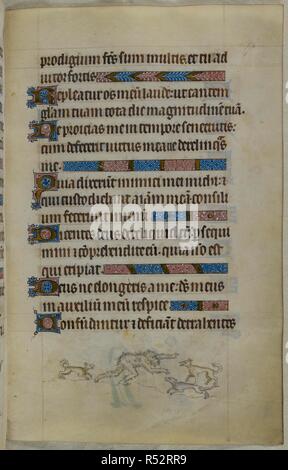 prodigium fcs sum multis. et tu ad
iutor fortis
Repleatur os meum laude. ut cantem
gl'am tuam tota die magnitudinē tuā.
Ne proicias me in tempore senectutis:
cum defecerit uirtus mea ne derelinq̄s
me.
Quia dixerunt inimici mei michi: &
qui custodiebāt aīam meam consili
um fecerunt in unum.
Dicentes deus dereliquit eū: persequi
mini & cōp'hendite eū: quia nō est
qui eripiat.
Deus ne elongeris a me: d's meus
in auxiliū meū respice
Confundantur & deficiāt detrahentes
alamy
alamy
Image ID: R52RR9
www.alamy.com